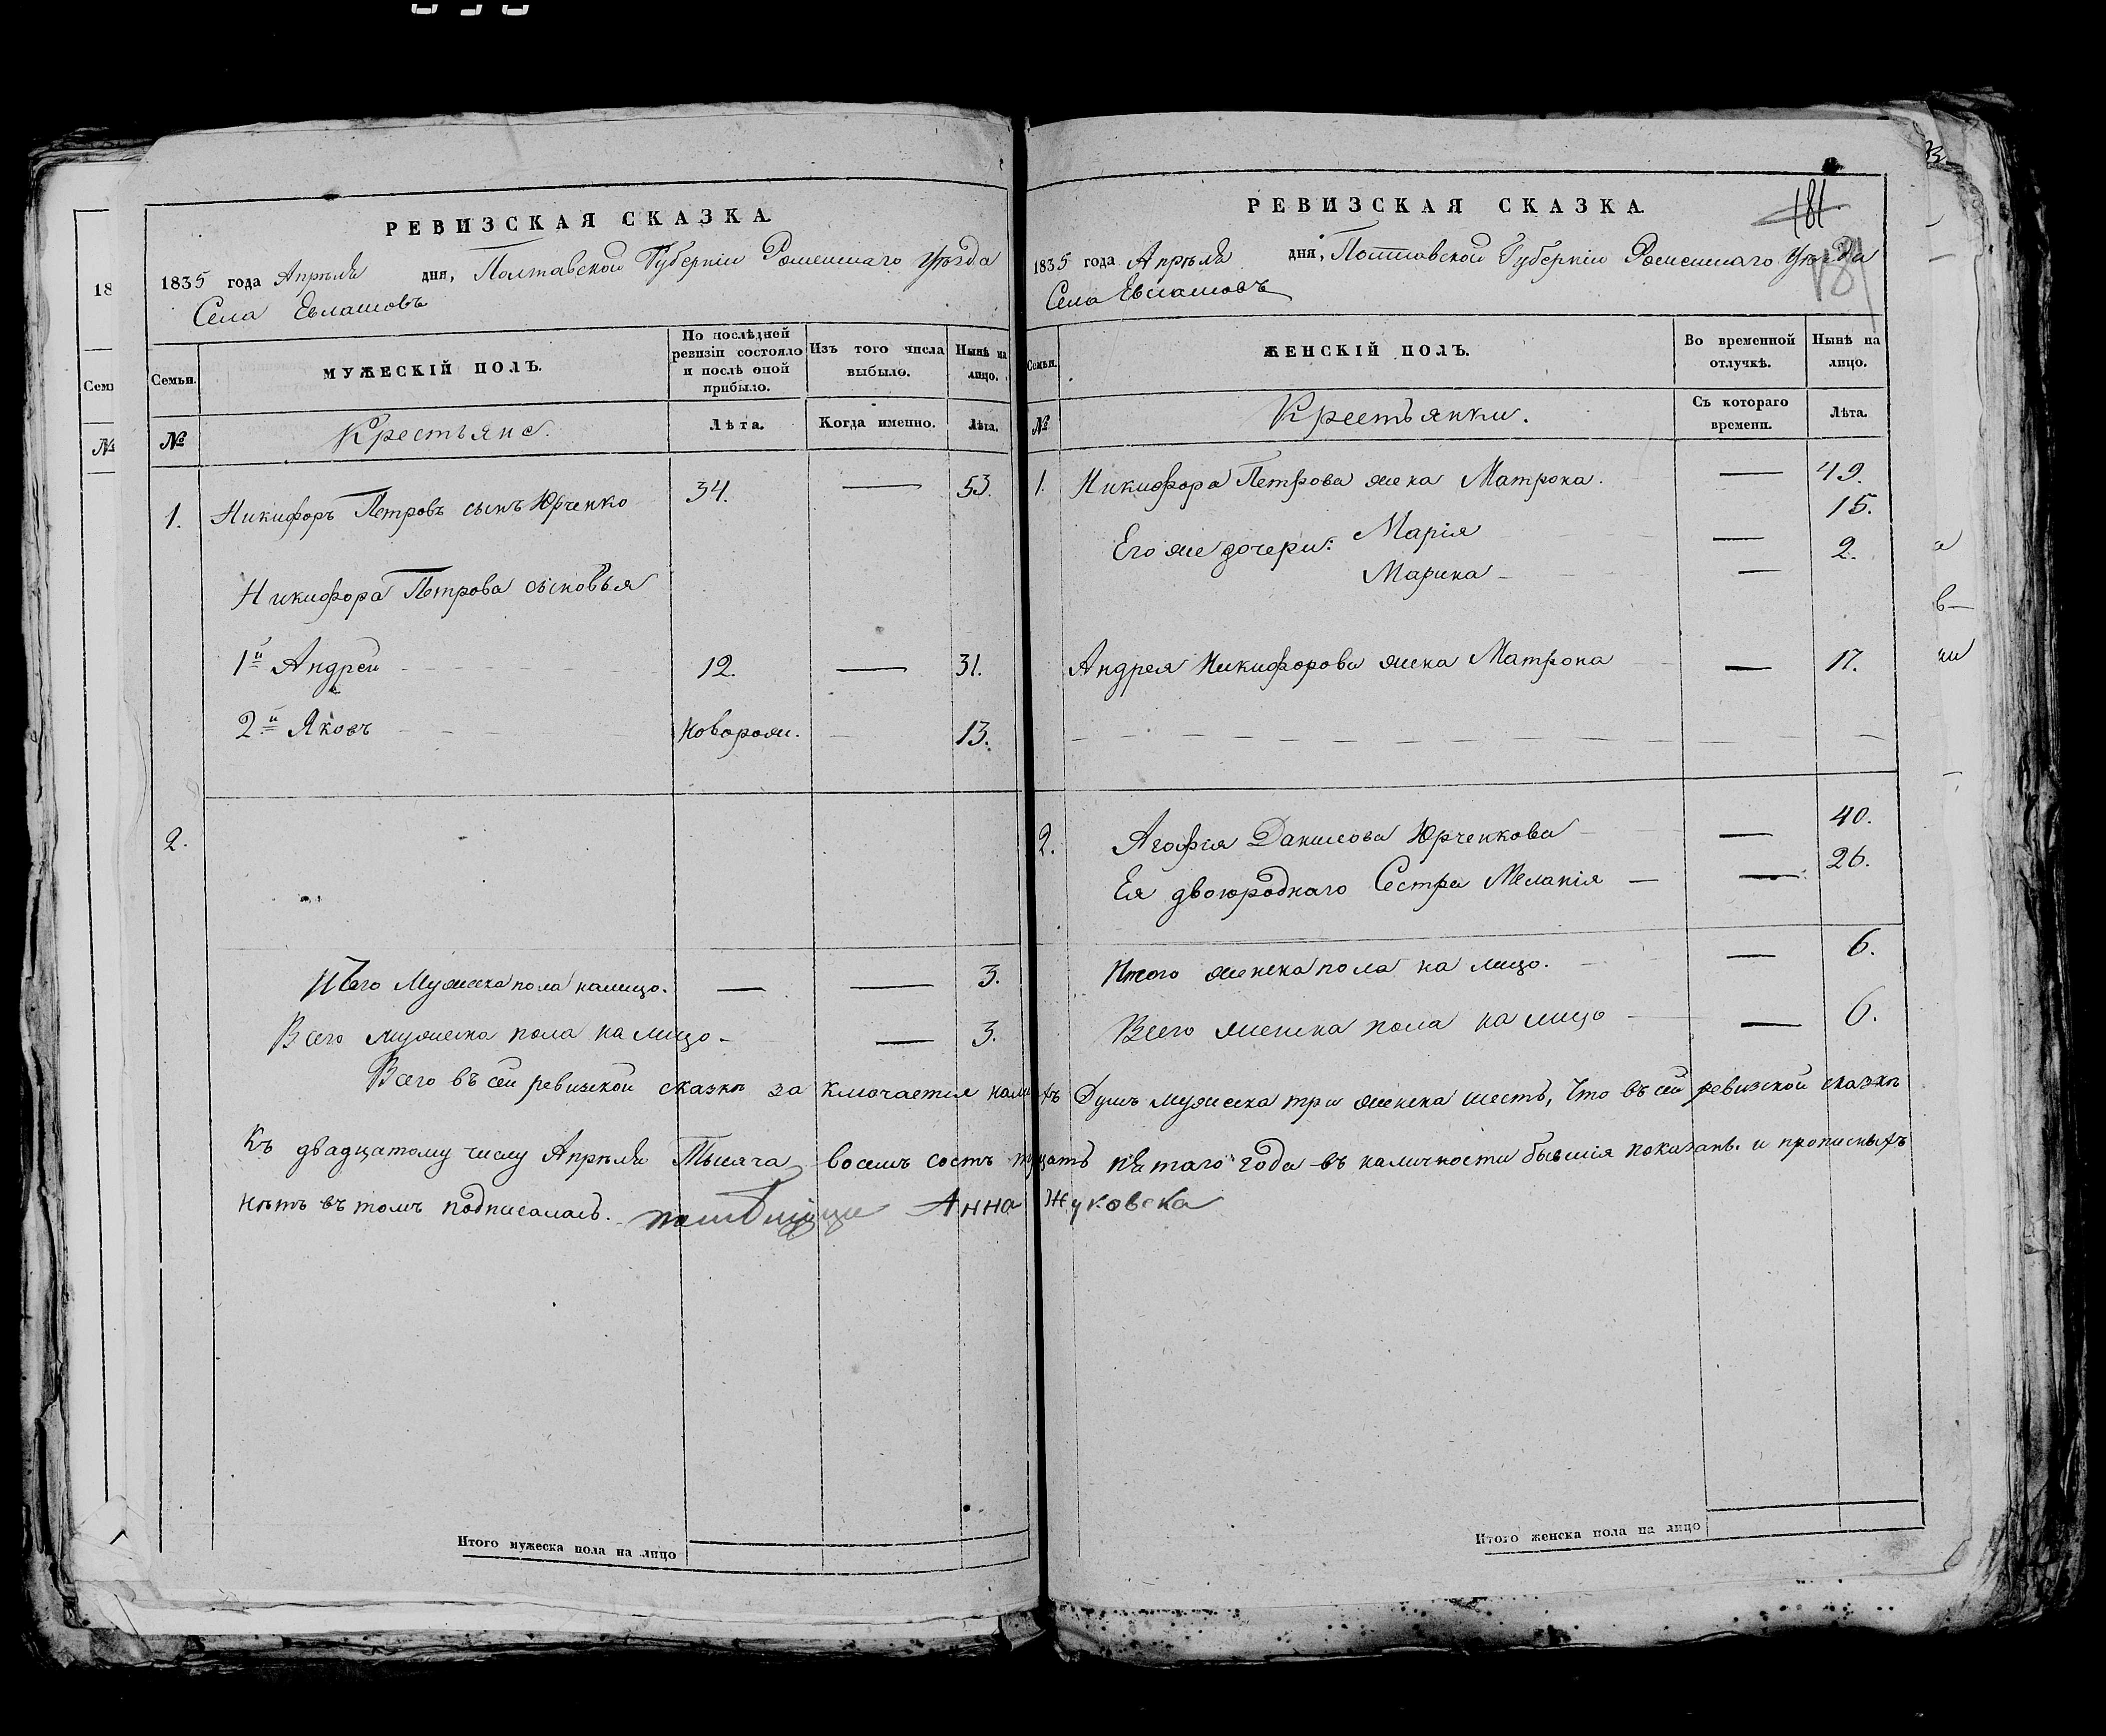 РЕВИЗСКАЯ СКАЗКА.
1835 года Апрѣля дня, Полтавской Губерніи Роменнаго Уѣзда
Села Евлашовъ
Семьи.
МУЖЕСКІЙ ПОЛЪ.
По послѣдней ревизіи состояло и послѣ оной прибыло.
Изъ того числа выбыло.
Нынѣ на лицо.
№
Крестьяне.
Лѣта.
Когда именно.
Лѣта.
1. Никифоръ Петровъ сынъ Юрченко 34. — 53.
Никифора Петрова сыновья
1й Андрей 12. — 31.
2й Яковъ новорож. — 13.
2.
Итого Мужеска пола налицо. — — 3.
Всего мужеска пола на лицо — — 3.
РЕВИЗСКАЯ СКАЗКА.
181
181
1835 года Апрѣля дня, Полтавской Губерніи Роменнаго Уѣзда
Села Евлашовъ
Семьи.
ЖЕНСКІЙ ПОЛЪ.
Во временной отлучкѣ.
Нынѣ на лицо.
№
Крестьянки.
Съ котораго времени.
Лѣта.
1. Никифора Петрова жена Матрона. — 49.
Его же дочери: Марія — 15.
Марина — 2.
Андрея Никифорова жена Матрона — 17.
2. Агафія Данилова Юрченкова — 40.
Ея двоюроднаго Сестра Меланія — 26.
Итого женска пола на лицо. — 6.
Всего женска пола на лицо — 6.
Всего въ сей ревизской сказкѣ заключается налицѣ Душъ мужеска три женска шесть, Что въ сей ревизской сказкѣ
Къ двадцатому числу Апрѣля Тысяча восемъ сотъ тридцать пятаго года въ наличности бывшія показаны. и прописныхъ
нѣтъ въ томъ подписалась. Анна Жуковска
Итого мужеска пола на лицо
Итого женска пола на лицо